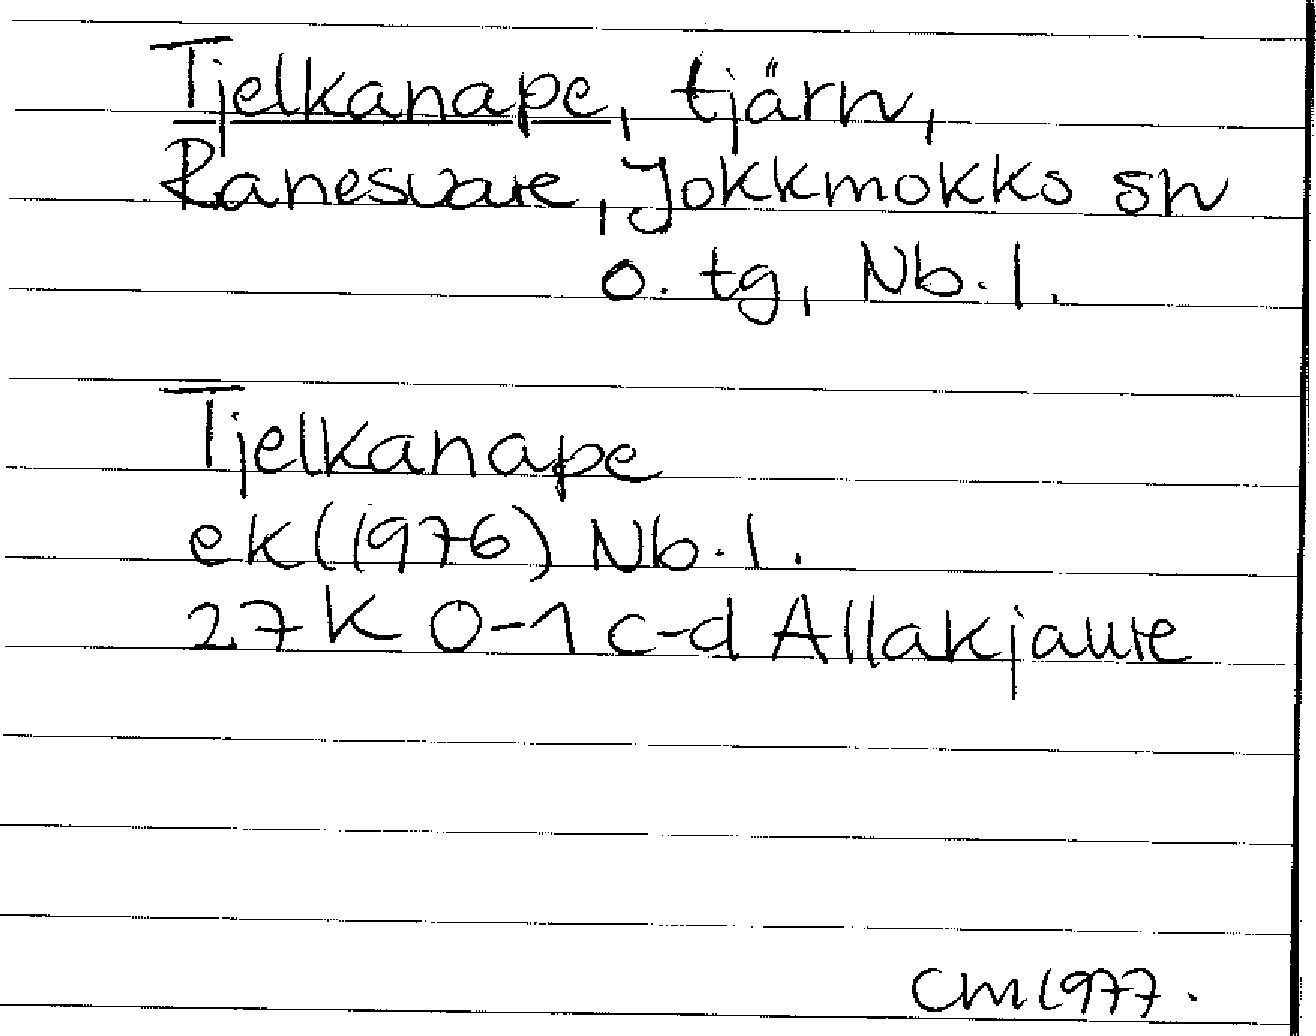 Tjelkanape, tjärn,
Ranesvare, Jokkmokks sn
o. tg, Nb. l.
Tjelkanape
ek (1976) Nb. l.
27 K 0-1 c-d Allakjaure
CM 1977.